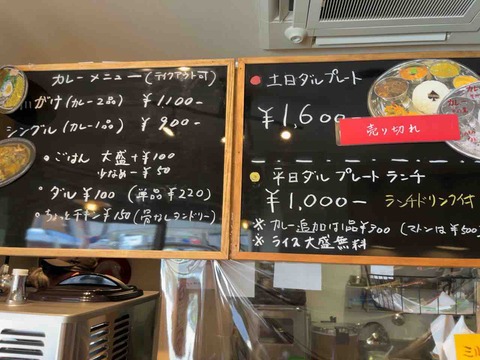 カレーメニュー (テイクアウト可)
がけ (カレー2品) ¥1100-
シングル (カレー1品) ¥900-
・ごはん 大盛+¥100
少なめ-¥50
・ダル ¥100 (単品¥220)
・ちょっとチキン ¥150 (骨なしタンドリー)
土日ダルプレート
¥1,600-
売り切れ
平日ダルプレートランチ
¥1,000- ランチドリンク付
※カレー追加は1品¥300 (マトンは¥500)
※ライス大盛無料